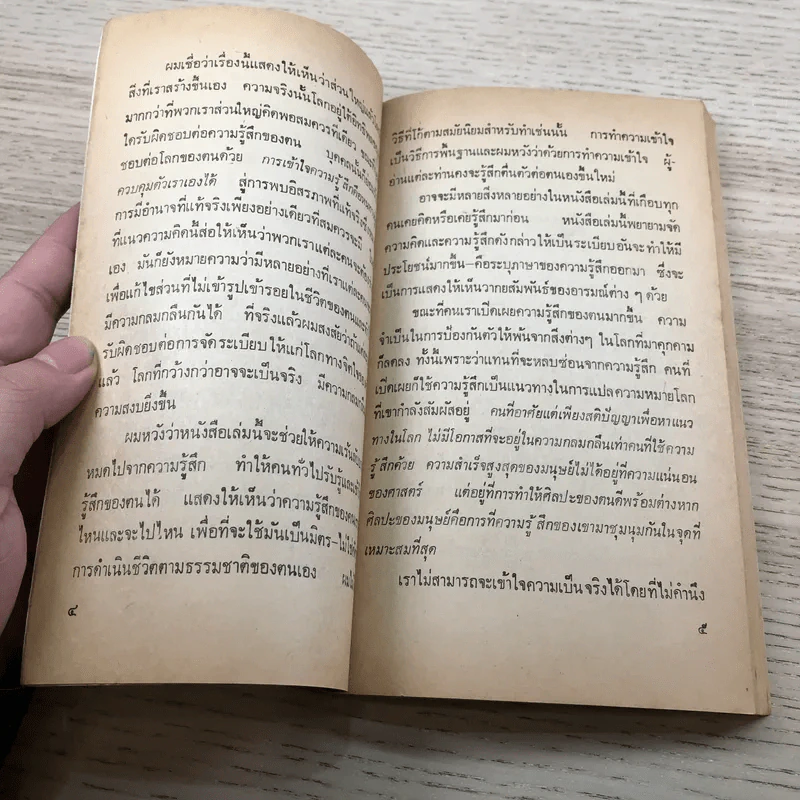 ผมเชื่อว่าเรื่องนี้แสดงให้เห็นว่าส่วนใหญ่
สิ่งที่เราสร้างขึ้นเอง ความจริงนั้นโลกอยู่ใต้
มากกว่าที่พวกเราส่วนใหญ่คิดพอสมควรทีเดียว
ใครรับผิดชอบต่อความรู้สึกของตน บุคคลนั้นก็
ชอบต่อโลกของตนด้วย การเข้าใจความรู้สึกคือ
ควบคุมตัวเราเองได้ สู่การพบอิสรภาพที่แท้จริง
การมีอำนาจที่แท้จริงเพียงอย่างเดียวที่สมควรจะมี
ที่แนวความคิดนี้ส่อให้เห็นว่าพวกเราแต่ละคนจะ
เอง มันก็ยังหมายความว่ามีหลายอย่างที่เราแต่ละ
เพื่อแก้ไขส่วนที่ไม่เข้ารูปเข้ารอยในชีวิตของตนและ
มีความกลมกลืนกันได้ ที่จริงแล้วผมสงสัยว่าถ้า
รับผิดชอบต่อการจัดระเบียบให้แก่โลกทางจิตใจ
แล้ว โลกที่กว้างกว่าอาจจะเป็นจริง มีความกลม
ความสงบยิ่งขึ้น
ผมหวังว่าหนังสือเล่มนี้จะช่วยให้ความเร้น
หมดไปจากความรู้สึก ทำให้คนทั่วไปรับรู้และ
รู้สึกของตนได้ แสดงให้เห็นว่าความรู้สึกของ
ไหนและจะไปไหน เพื่อที่จะใช้มันเป็นมิตร–ไม่ใช่
การดำเนินชีวิตตามธรรมชาติของตนเอง
๔
วิธีที่โก้ตามสมัยนิยมสำหรับทำเช่นนั้น การทำความเข้าใจ
เป็นวิธีการพื้นฐานและผมหวังว่าด้วยการทำความเข้าใจ ผู้-
อ่านแต่ละท่านคงจะรู้สึกตื่นตัวต่อตนเองขึ้นใหม่
อาจจะมีหลายสิ่งหลายอย่างในหนังสือเล่มนี้ที่เกือบทุก
คนเคยคิดหรือเคยรู้สึกมาก่อน หนังสือเล่มนี้พยายามจัด
ความคิดและความรู้สึกดังกล่าวให้เป็นระเบียบ อันจะทำให้มี
ประโยชน์มากขึ้น–คือระบุภาษาของความรู้สึกออกมา ซึ่งจะ
เป็นการแสดงให้เห็นวากยสัมพันธ์ของอารมณ์ต่าง ๆ ด้วย
ขณะที่คนเราเปิดเผยความรู้สึกของตนมากขึ้น ความ
จำเป็นในการป้องกันตัวให้พ้นจากสิ่งต่างๆ ในโลกที่มาคุกคาม
ก็ลดลง ทั้งนี้เพราะว่าแทนที่จะหลบซ่อนจากความรู้สึก คนที่
เปิดเผยก็ใช้ความรู้สึกเป็นแนวทางในการแปลความหมายโลก
ที่เขากำลังสัมผัสอยู่ คนที่อาศัยแต่เพียงสติปัญญาเพื่อหาแนว
ทางในโลก ไม่มีโอกาสที่จะอยู่ในความกลมกลืนเท่าคนที่ใช้ความ
รู้สึกด้วย ความสำเร็จสูงสุดของมนุษย์ไม่ได้อยู่ที่ความแน่นอน
ของศาสตร์ แต่อยู่ที่การทำให้ศิลปะของตนดีพร้อมต่างหาก
ศิลปะของมนุษย์คือการที่ความรู้สึกของเขามาชุมนุมกันในจุดที่
เหมาะสมที่สุด
เราไม่สามารถจะเข้าใจความเป็นจริงได้โดยที่ไม่คำนึง
๕